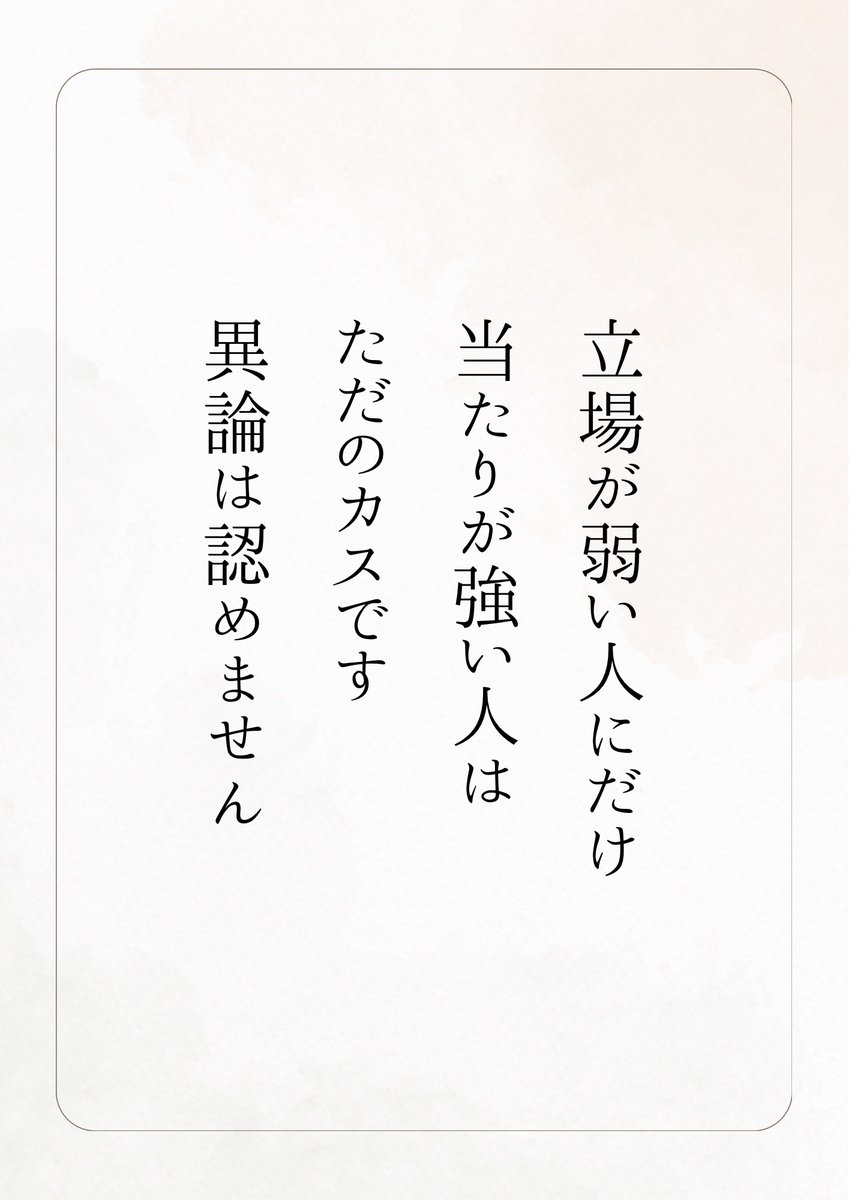 立場が弱い人にだけ
当たりが強い人は
ただのカスです
異論は認めません